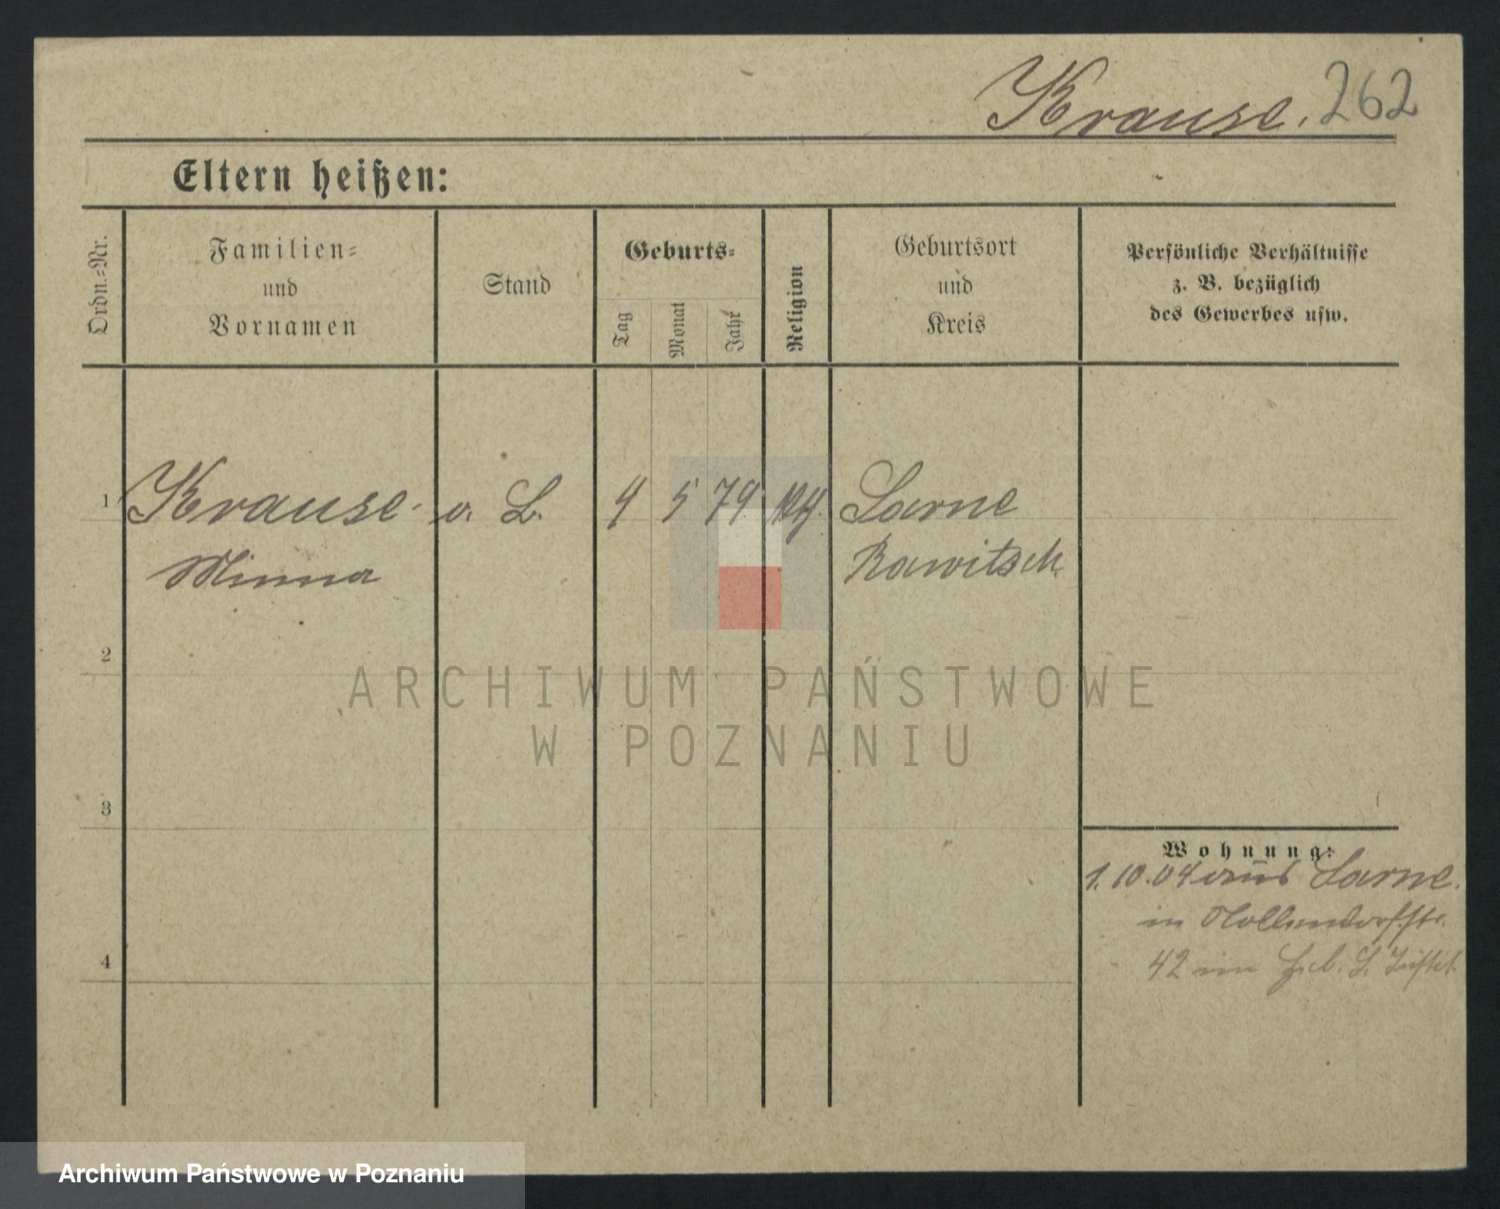 Krause. 262
Eltern heißen:
Ordn.=Nr.
Familien=
und
Vornamen
Stand
Geburts=
Tag
Monat
Jahr
Religion
Geburtsort
und
Kreis
Persönliche Verhältnisse
z. B. bezüglich
des Gewerbes usw.
1 Krause. o. L. 4 5 79. Sarne
Minna Rawitsch.
2
ARCHIWUM PAŃSTWOWE
W POZNANIU
3
Wohnung:
1.10.04 aus Sarne.
in Nollendorfstr.
42 im
4
Archiwum Państwowe w Poznaniu